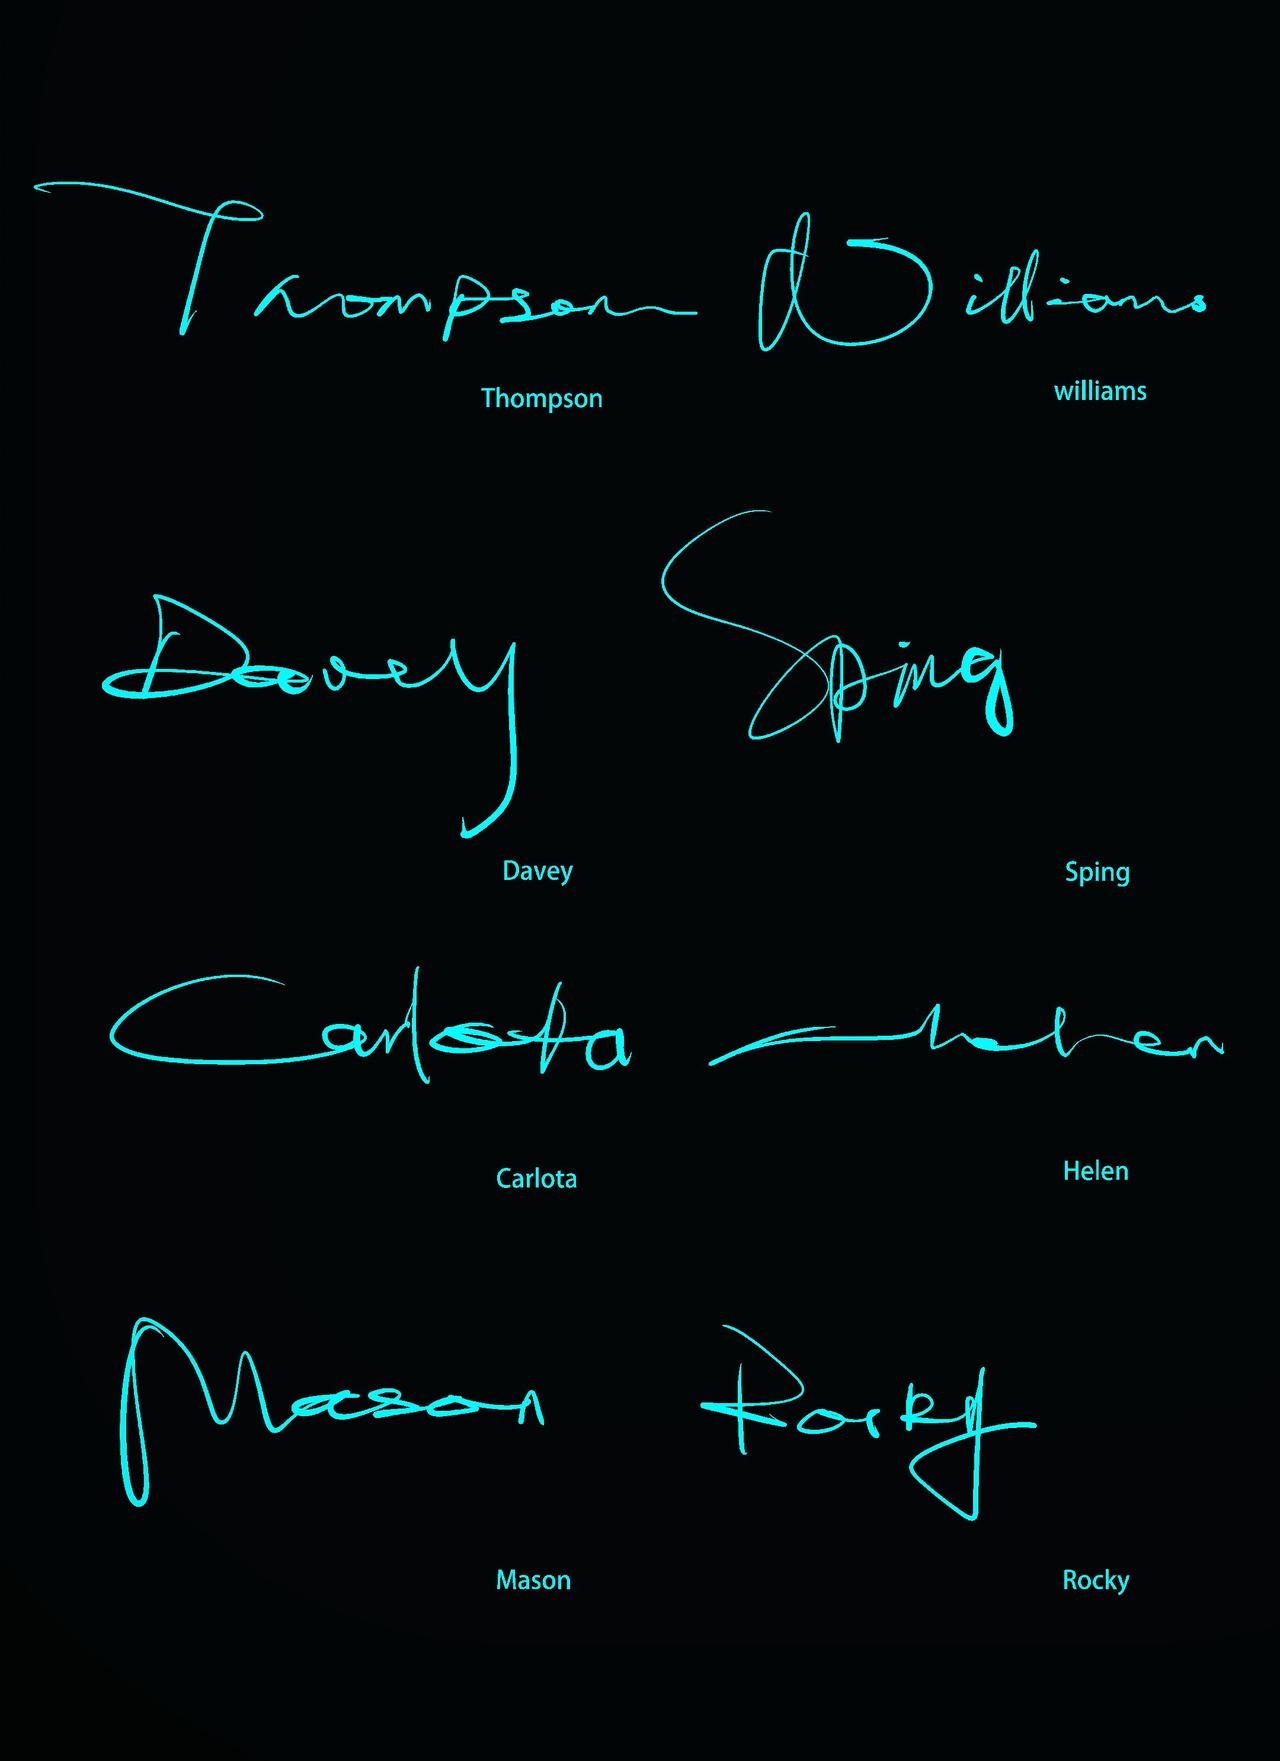 Thompson Williams
Thompson williams
Davey Sping
Davey Sping
Carlota Helen
Carlota Helen
Mason Rocky
Mason Rocky